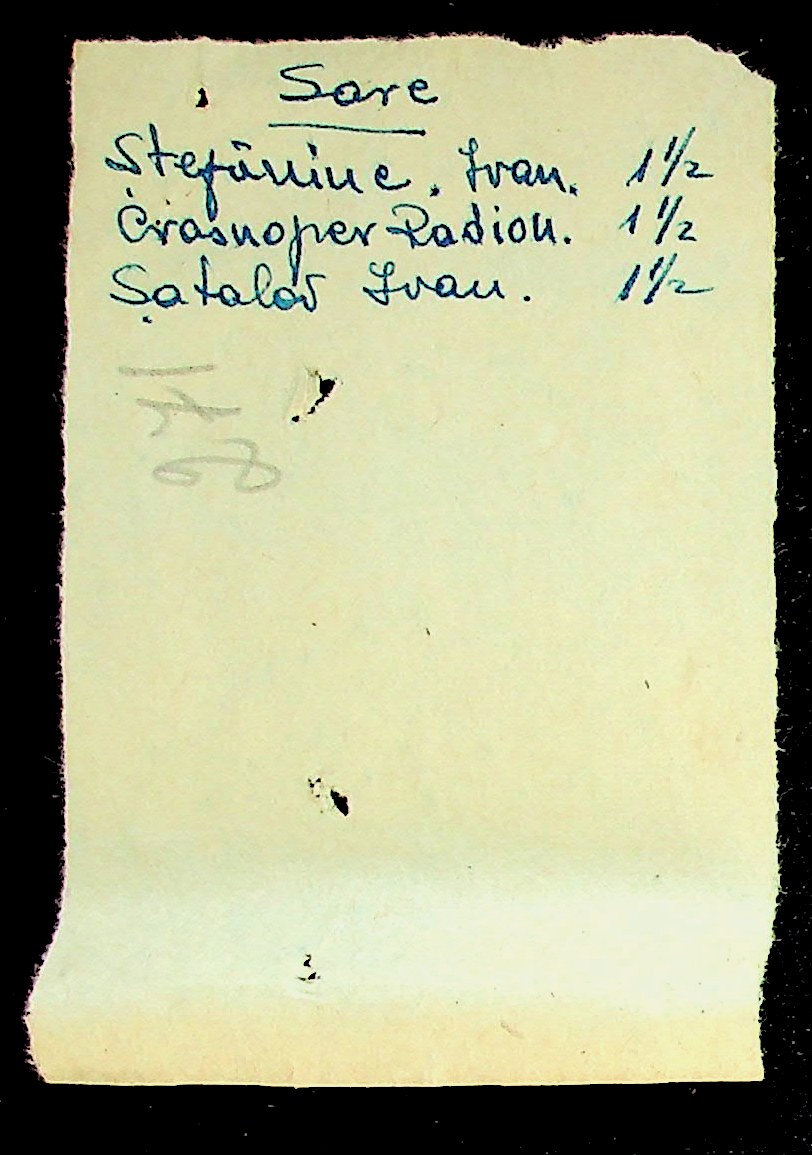 Sare
Ștefăninc. Ivan. 1 1/2
Crasnoper Radion. 1 1/2
Șatalov Ivan. 1 1/2